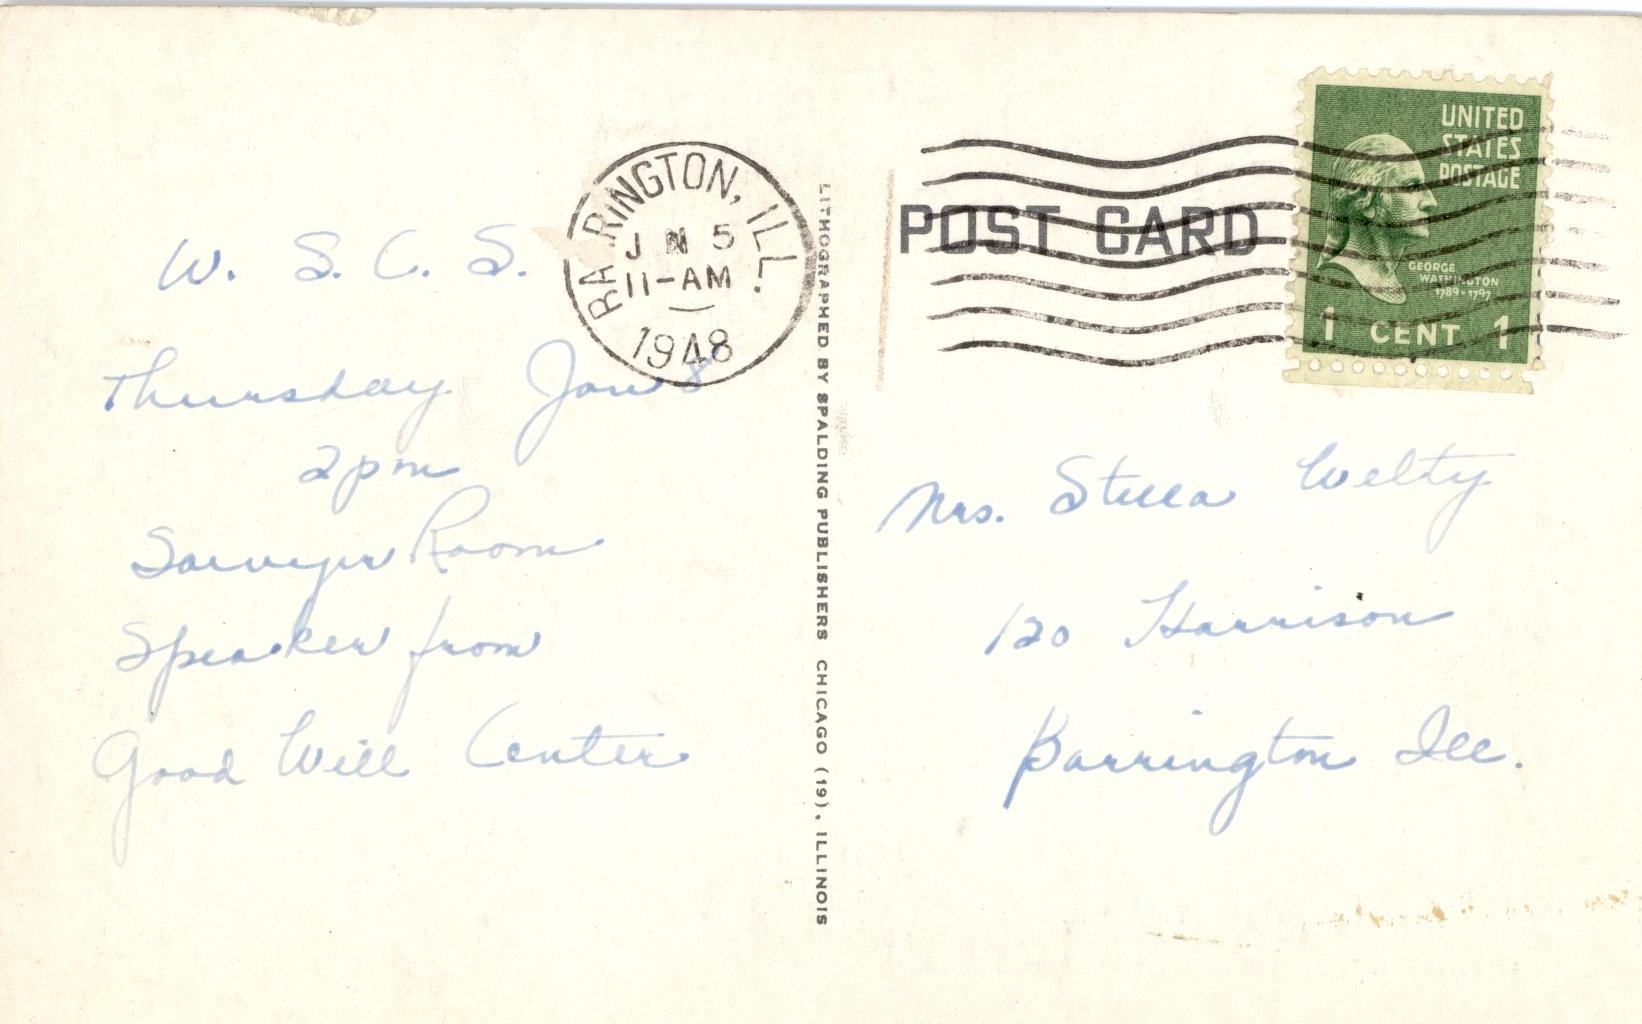 W. S. C. S.
Thursday Jan 8
2pm
Sawyer Room
Speaker from
Good Will Center
BARRINGTON, ILL.
J N 5
11-AM
1948
LITHOGRAPHED BY SPALDING PUBLISHERS CHICAGO (19), ILLINOIS
POST CARD
UNITED
STATES
POSTAGE
GEORGE
WASHINGTON
1789-1797
1 CENT 1
Mrs. Stella Welty
120 Harrison
Barrington Ill.